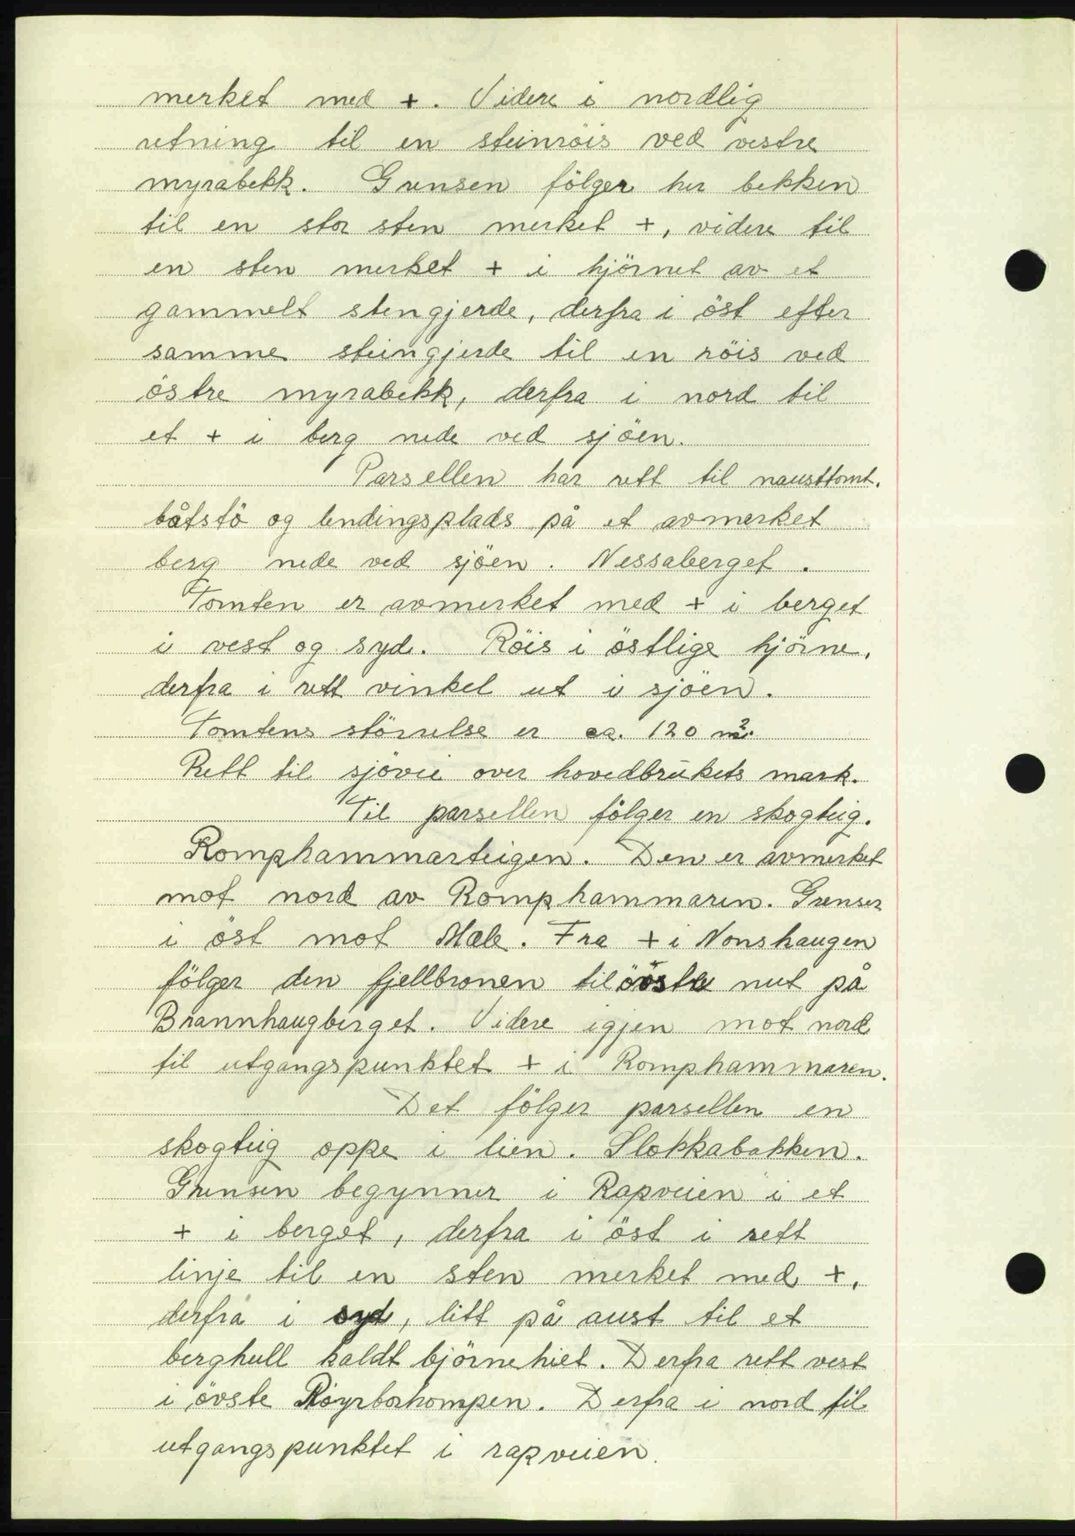 merket med +. Videre i nordlig
retning til en steinröis ved vestre
myrabekk. Grensen fölger her bekken
til en stor sten merket +, videre til
en sten merket + i hjörnet av et
gammelt stengjerde, derfra i öst efter
samme steingjerde til en röis ved
östre myrabekk, derfra i nord til
et + i berg nede ved sjöen.
Parsellen har rett til nausttomt,
båtstö og lendingsplads på et avmerket
berg nede ved sjöen. Nessaberget.
Tomten er avmerket med + i berget
i vest og syd. Röis i östlige hjörne,
derfra i rett vinkel ut i sjöen.
Tomtens störrelse er ca. 120 m².
Rett til sjövei over hovedbrukets mark.
Til parsellen fölger en skogteig.
Romphammarteigen. Den er avmerket
mot nord av Romphammaren. Grenser
i öst mot Mæle. Fra + i Nonshaugen
fölger den fjellbronen til nut på
Brannhaugberget. Videre igjen mot nord
til utgangspunktet + i Romphammaren.
Det fölger parsellen en
skogteig oppe i lien. Slokkabakken.
Grensen begynner i Rapveien i et
+ i berget, derfra i öst i rett
linje til en sten merket med +,
derfra i syd, litt på aust til et
berghull kaldt björnehiet. Derfra rett vest
i övste. Derfra i nord til
utgangspunktet i rapveien.